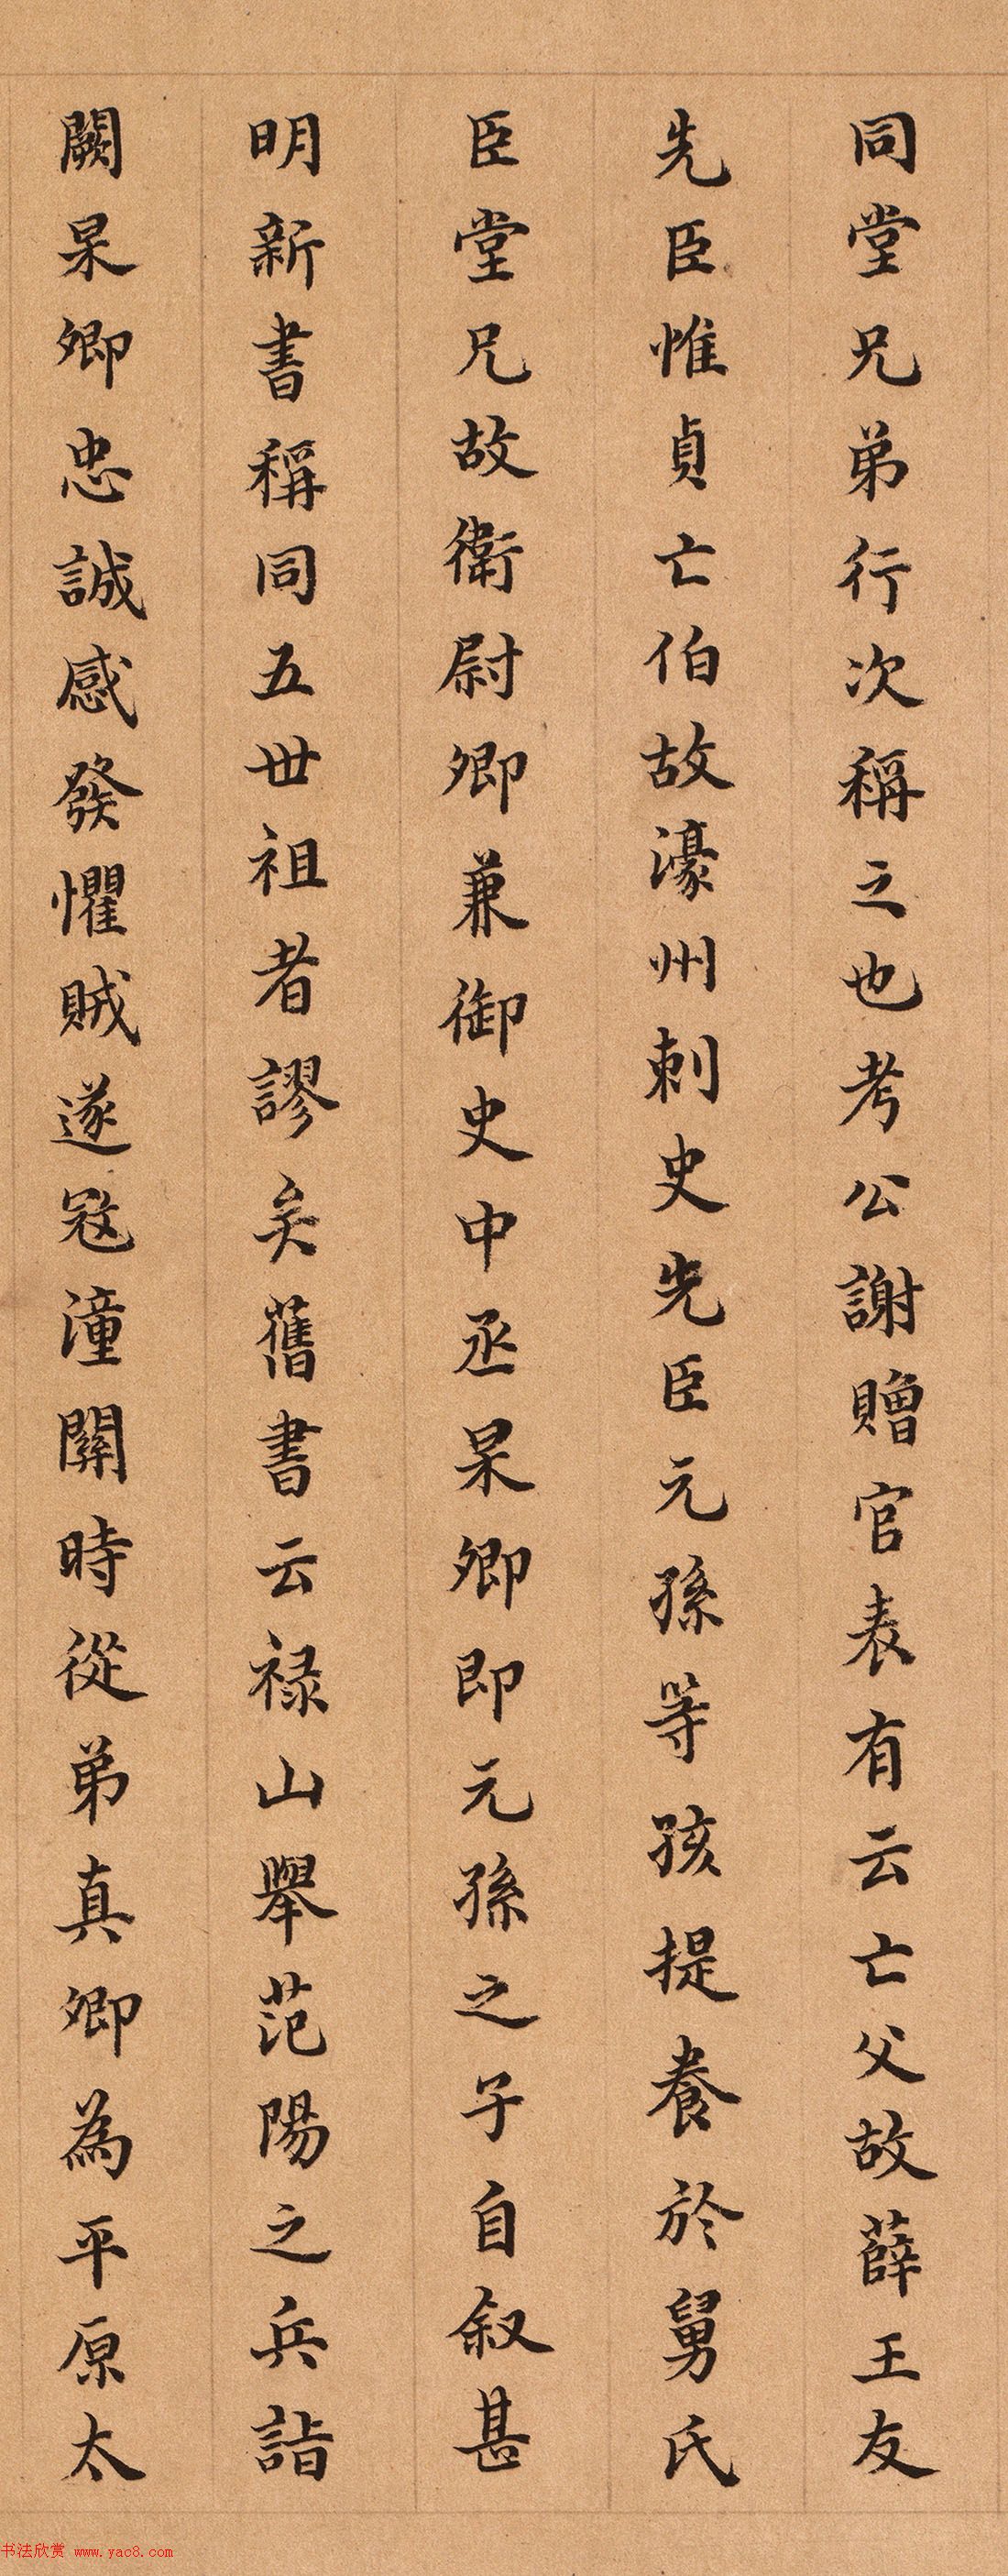 同堂兄弟行次稱之也考公謝贈官表有云亡父故薛王友
先臣惟貞亡伯故濠州刺史先臣元孫等孩提養於舅氏
臣堂兄故衛尉卿兼御史中丞杲卿即元孫之子自叙甚
明新書稱同五世祖者謬矣舊書云禄山舉范陽之兵詣
闕杲卿忠誠感發懼賊遂寇潼關時從弟真卿為平原太
书法欣赏 www.yac8.com